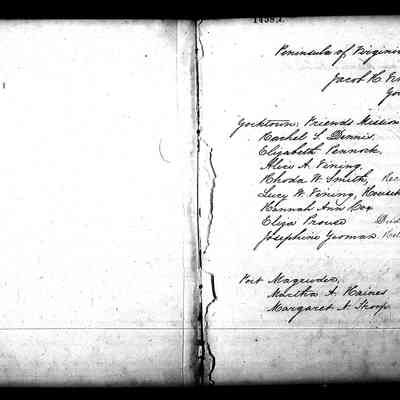 Peninsula of Virginia
Jacob H. Vin
Yo
Yorktown, Friends Mission
Rachel S. Dennis,
Elizabeth Pennock,
Alice A. Vining,
Rhoda W. Smith, Rec
Lucy W. Vining, Househ
Hannah Ann Cox
Eliza Prouse Did
Josephine Yeoman
Fort Magruder,
Martha A. Haines
Margaret A. Thorp